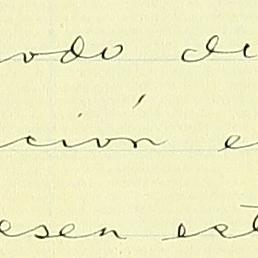 odo de
ción e
esen est